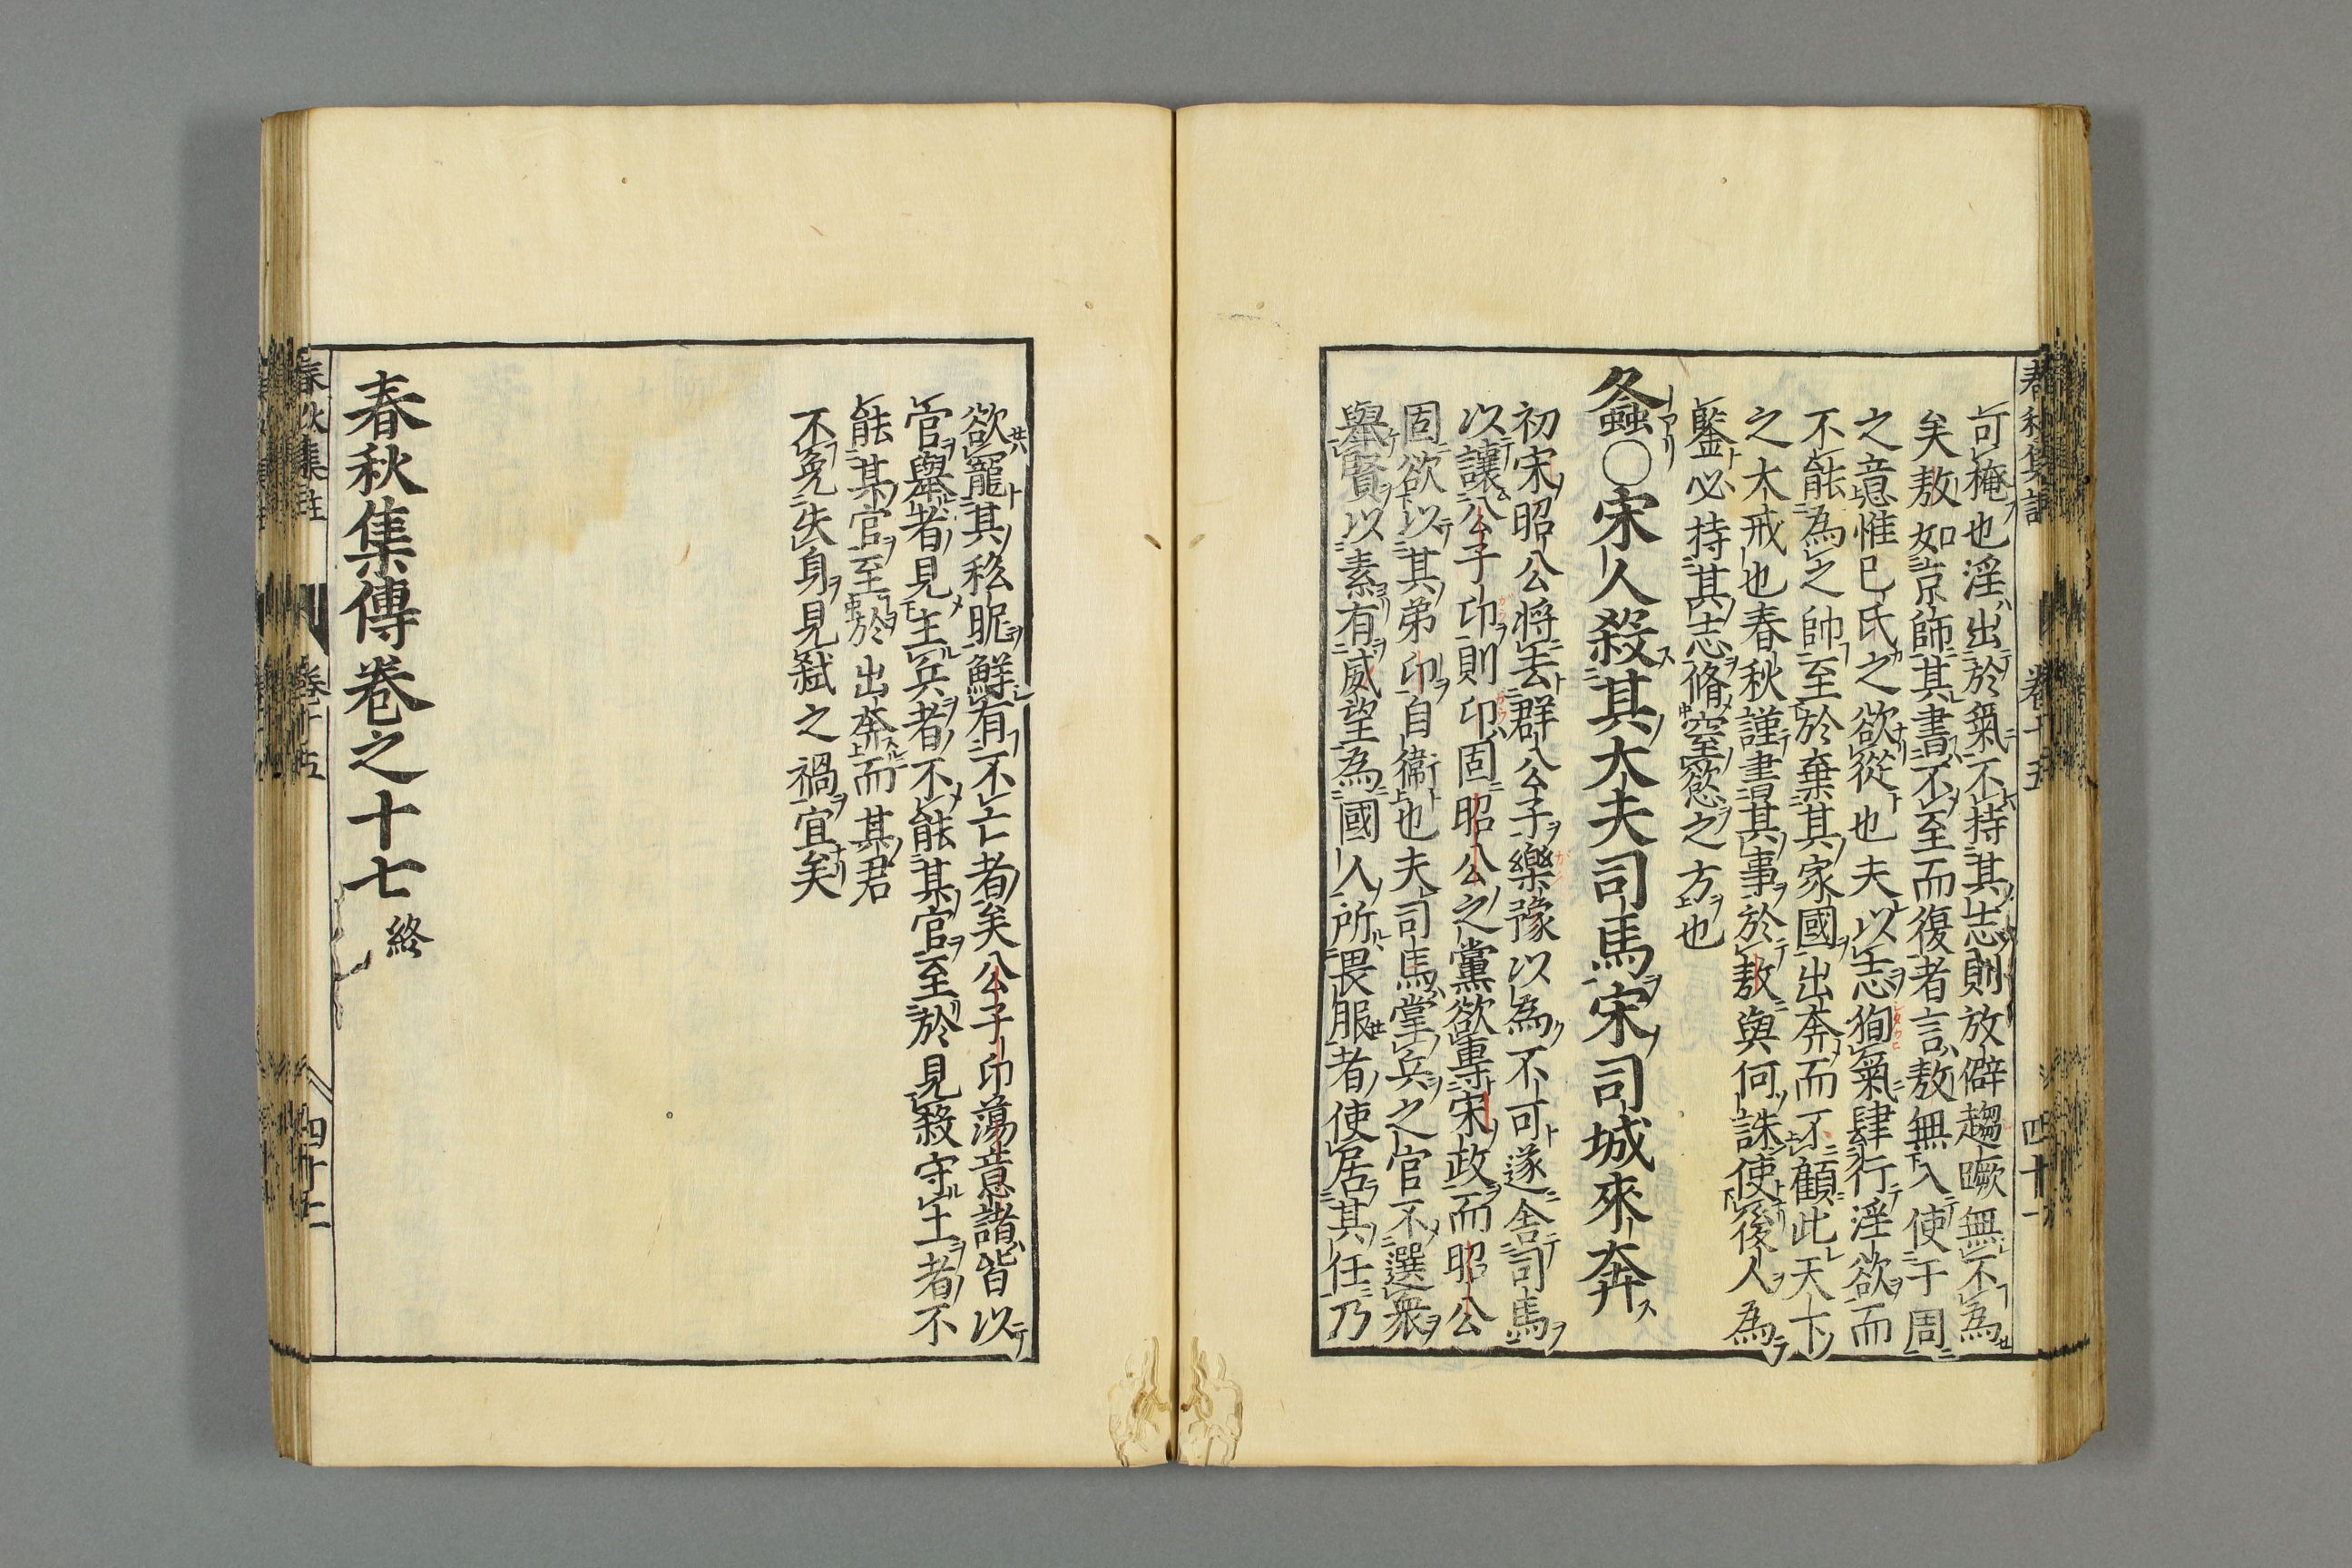 可掩也淫出於氣不持其志則放僻趨蹶無不為
矣敖如京師其書不至而復者言敖無入使于周
之意惟已氏之欲從也夫以志徇氣肆行淫欲而
不能為之帥至於棄其家國出奔而不顧此天下
之大戒也春秋謹書其事於敖與何誅使後人為
鑒必持其志脩窒慾之方也
螽○宋人殺其大夫司馬宋司城來奔
初宋昭公將去群公子樂豫以為不可遂舍司馬
以讓公子卬則卬固昭公之黨欲專宋政而昭公
固欲以其弟卬自衞也夫司馬掌兵之官不選衆
舉賢以素有威望為國人所畏服者使居其任乃
春秋集註 卷十五 四十一
欲寵其私昵鮮有不亡者矣公子卬蕩意諸皆以
官舉者見主兵者不能其官至於見殺守土者不
能其官至於出奔而其君
不免失身見弑之禍宜矣
春秋集傳卷之十七終
春秋集註 卷十五 四十二